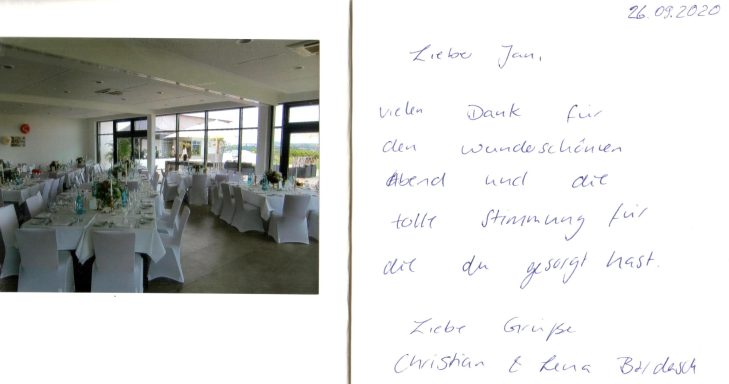 26.09.2020
Liebe Jan,
vielen Dank für
den wunderschönen
Abend und die
tolle Stimmung für
die du gesorgt hast.
Liebe Grüße
Christian & Lena Bardasch